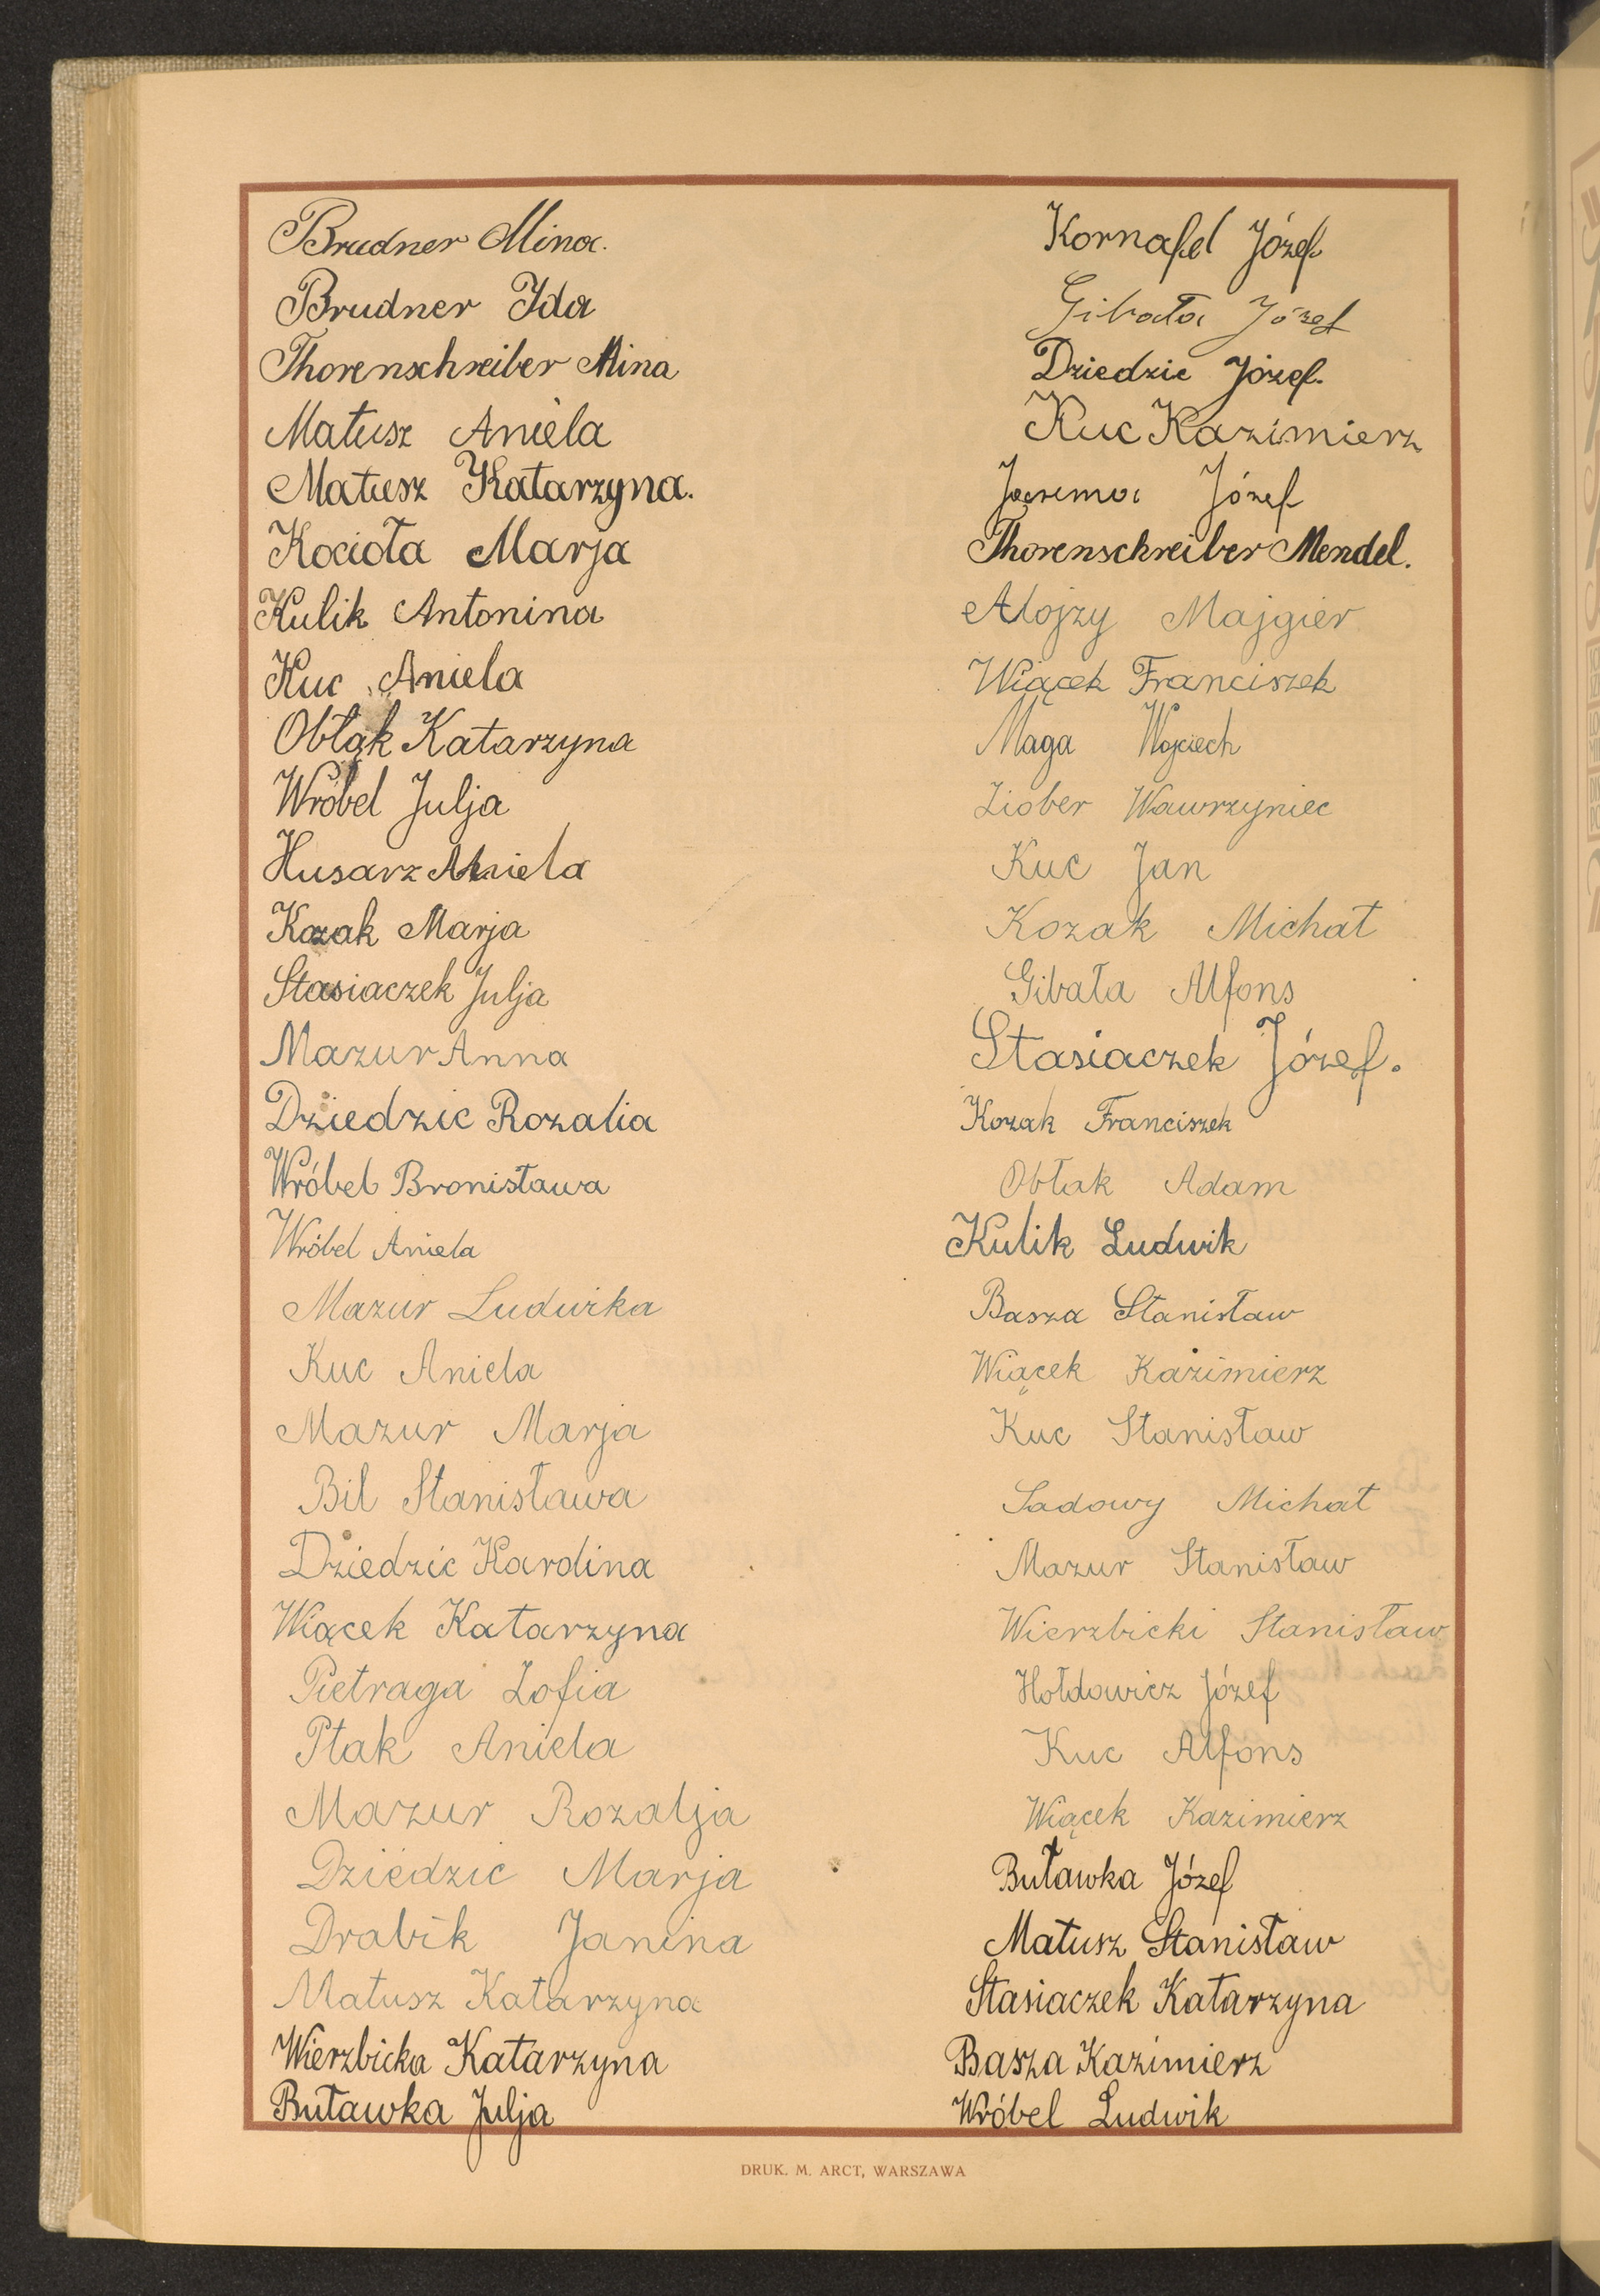 Brudner Mina.
Brudner Ida
Thorenschreiber Mina
Matusz Aniela
Matusz Katarzyna.
Kocioła Marja
Kulik Antonina
Kuc Aniela
Obłąk Katarzyna
Wróbel Julja
Husarz Aniela
Kozak Marja
Stasiaczek Julja
Mazur Anna
Dziedzic Rozalia
Wróbel Bronisława
Wróbel Aniela
Mazur Ludwika
Kuc Aniela
Mazur Marja
Bil Stanisława
Dziedzic Karolina
Wiącek Katarzyna
Pietraga Zofia
Ptak Aniela
Mazur Rozalja
Dziedzic Marja
Drabik Janina
Matusz Katarzyna
Wierzbicka Katarzyna
Buławka Julja
Kornafel Józef
Gibała Józef
Dziedzic Józef.
Kuc Kazimierz
Józef
Thorenschreiber Mendel.
Alojzy Majgier
Wiącek Franciszek
Maga Wojciech
Ziober Wawrzyniec
Kuc Jan
Kozak Michał
Gibała Alfons
Stasiaczek Józef.
Kozak Franciszek
Obłak Adam
Kulik Ludwik
Basza Stanisław
Wiącek Kazimierz
Kuc Stanisław
Sadowy Michał
Mazur Stanisław
Wierzbicki Stanisław
Hołdowicz Józef
Kuc Alfons
Wiącek Kazimierz
Buławka Józef
Matusz Stanisław
Stasiaczek Katarzyna
Basza Kazimierz
Wróbel Ludwik
DRUK. M. ARCT, WARSZAWA